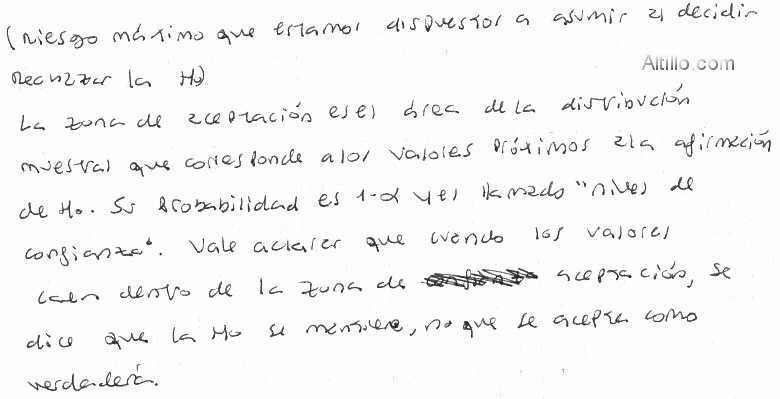 (riesgo máximo que estamos dispuestos a asumir al decidir
Altillo.com
rechazar la Ho)
La zona de aceptación es el área de la distribución
muestral que corresponde a los valores próximos a la afirmación
de Ho. Su probabilidad es 1-α y es llamado "nivel de
confianza". Vale aclarar que cuando los valores
caen dentro de la zona de aceptación, se
dice que la Ho se mantiene, no que se acepta como
verdadera.